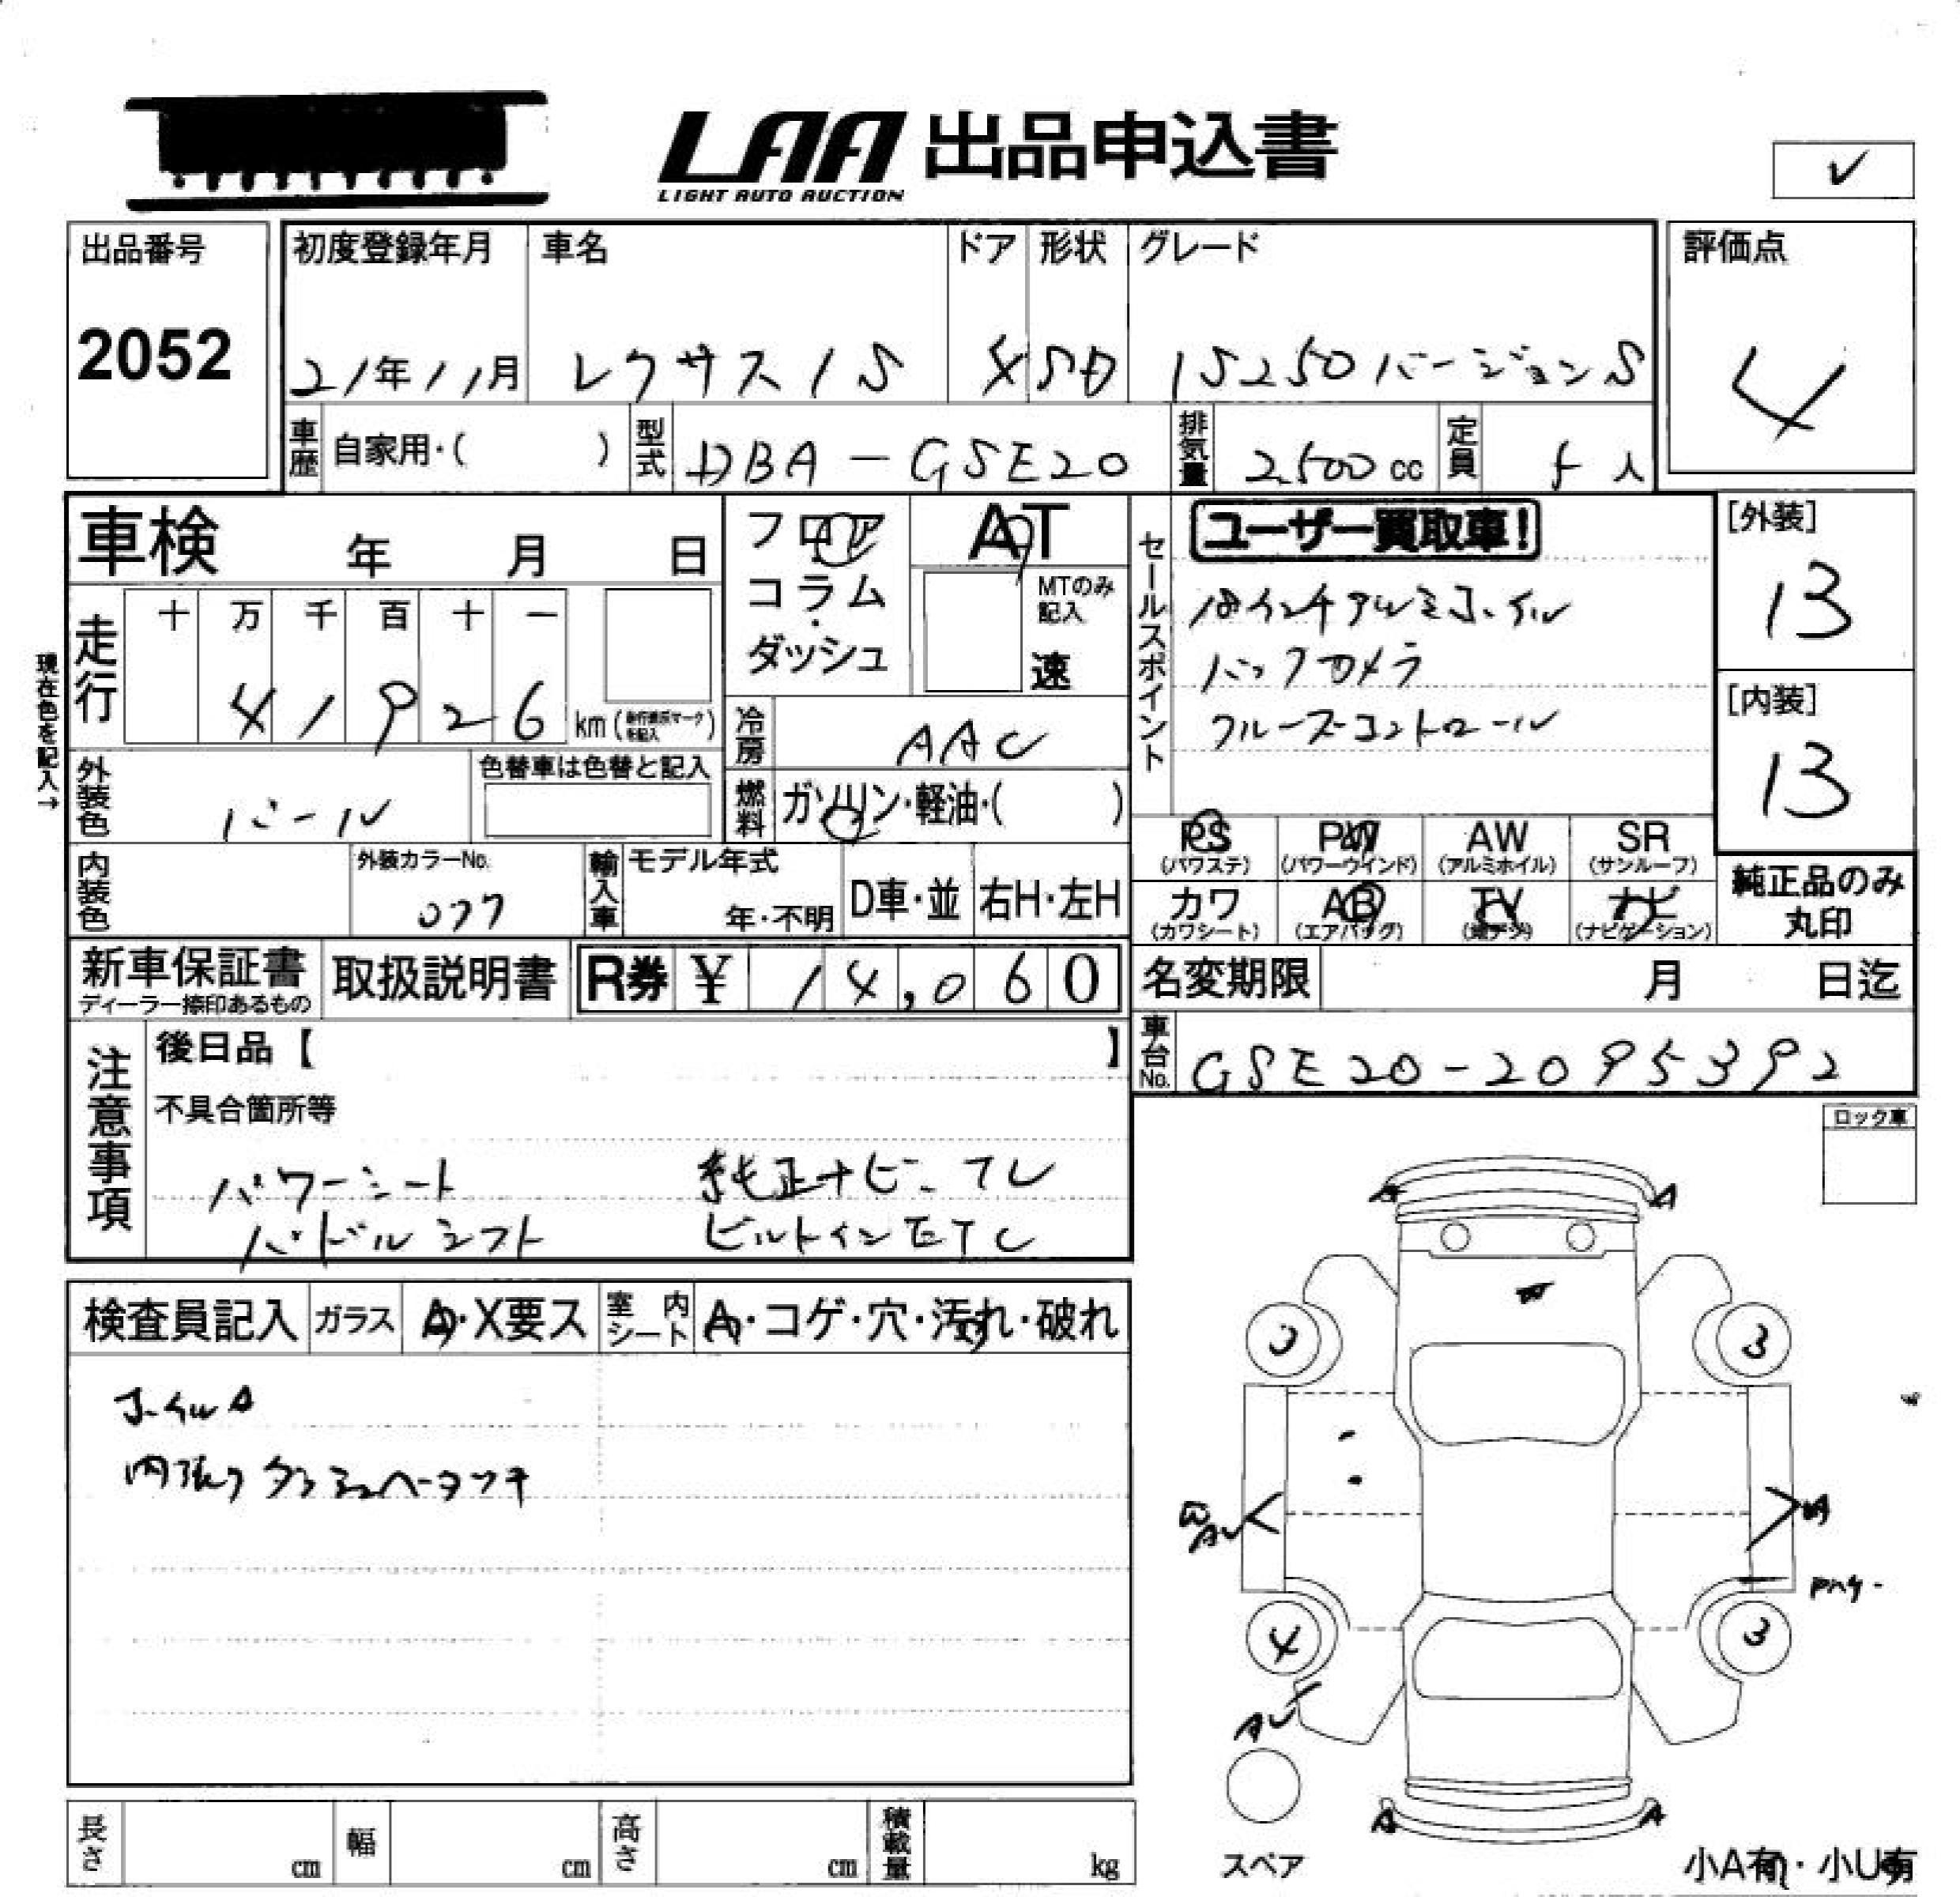 LAA 出品申込書
LIGHT AUTO AUCTION
✓
出品番号
2052
初度登録年月
21年11月
車名
レクサスIS
ドア
4
形状
SD
グレード
IS250バージョンS
評価点
4
車歴
自家用・( )
型式
DBA-GSE20
排気量
2,500cc
定員
5人
車検 年 月 日
フロア
コラム
・
ダッシュ
AT
MTのみ
記入
速
セールスポイント
ユーザー買取車!
18インチアルミホイル
バックカメラ
クルーズコントロール
[外装]
13
[内装]
13
現在色を記入→
走行
十 万 千 百 十 一
4 1 9 2 6 km
冷房
AAC
燃料
ガソリン・軽油・( )
外装色
パール
色替車は色替と記入
内装色
外装カラーNo.
077
輸入車
モデル年式
年・不明
D車・並
右H・左H
PS
(パワステ)
PW
(パワーウインド)
AW
(アルミホイル)
SR
(サンルーフ)
カワ
(カワシート)
AB
(エアバッグ)
TV
(地デジ)
ナビ
(ナビゲーション)
純正品のみ
丸印
新車保証書
ディーラー捺印あるもの
取扱説明書
R券 ¥ 14,060
名変期限 月 日迄
車台No.
GSE20-2095392
注意事項
後日品【 】
不具合箇所等
パワーシート 純正ナビ、TV
パドルシフト ビルトインETC
ロック車
検査員記入
ガラス
A・X要ス
室内シート
A・コゲ・穴・汚れ・破れ
ホイルA
内張り
A A
3 3
A
4 3
AU
A A
スペア
小A有・小U有
長さ cm
幅 cm
高さ cm
積載量 kg